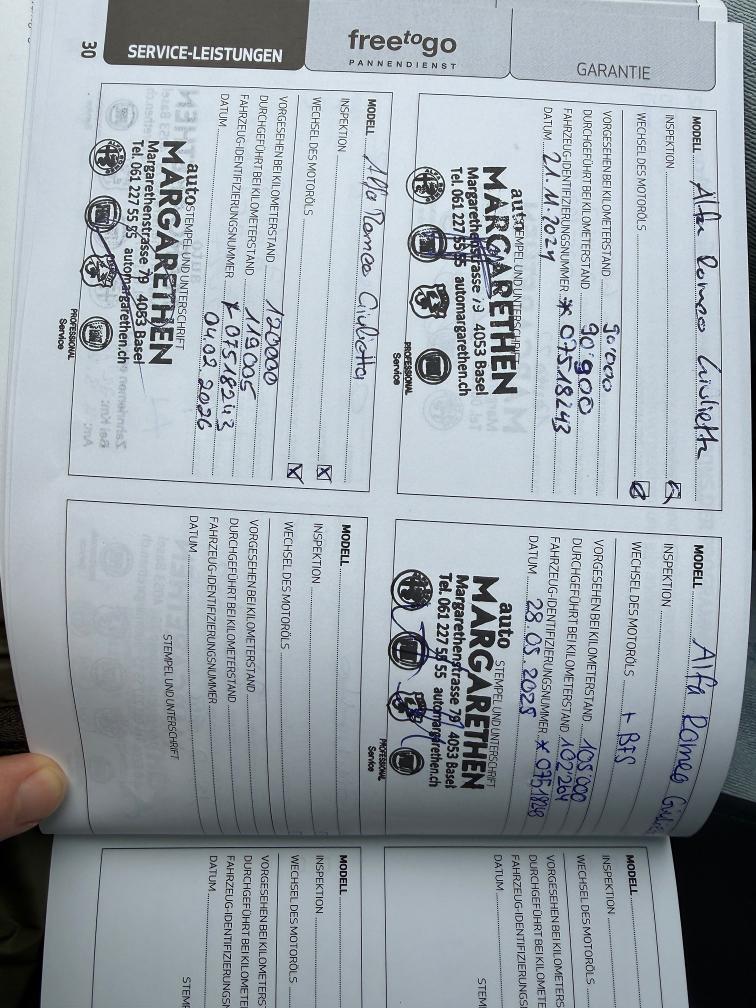 30
SERVICE-LEISTUNGEN
freetogo
PANNENDIENST
GARANTIE
MODELL Alfa Romeo Giulietta
INSPEKTION
WECHSEL DES MOTORÖLS
VORGESEHEN BEI KILOMETERSTAND 90'000
DURCHGEFÜHRT BEI KILOMETERSTAND 90'900
FAHRZEUG-IDENTIFIZIERUNGSNUMMER * 07518243
DATUM 21.11.2024
STEMPEL UND UNTERSCHRIFT
auto
MARGARETHEN
Margarethenstrasse 79 4053 Basel
Tel. 061 227 55 55 automargarethen.ch
PROFESSIONAL
Service
MODELL Alfa Romeo
INSPEKTION
WECHSEL DES MOTORÖLS + BFS
VORGESEHEN BEI KILOMETERSTAND 105'000
DURCHGEFÜHRT BEI KILOMETERSTAND 102'264
FAHRZEUG-IDENTIFIZIERUNGSNUMMER
DATUM 28.05.2025
STEMPEL UND UNTERSCHRIFT
auto
MARGARETHEN
Margarethenstrasse 79 4053 Basel
Tel. 061 227 55 55 automargarethen.ch
PROFESSIONAL
Service
MODELL Alfa Romeo Giulietta
INSPEKTION X
WECHSEL DES MOTORÖLS X
VORGESEHEN BEI KILOMETERSTAND 120000
DURCHGEFÜHRT BEI KILOMETERSTAND 119005
FAHRZEUG-IDENTIFIZIERUNGSNUMMER * 07518243
DATUM 04.02.2026
STEMPEL UND UNTERSCHRIFT
auto
MARGARETHEN
Margarethenstrasse 79 4053 Basel
Tel. 061 227 55 55 automargarethen.ch
PROFESSIONAL
Service
MODELL
INSPEKTION
WECHSEL DES MOTORÖLS
VORGESEHEN BEI KILOMETERSTAND
DURCHGEFÜHRT BEI KILOMETERSTAND
FAHRZEUG-IDENTIFIZIERUNGSNUMMER
DATUM
STEMPEL UND UNTERSCHRIFT
MODELL
INSPEKTION
WECHSEL DES MOTORÖLS
VORGESEHEN BEI KILOMETERS
DURCHGEFÜHRT BEI KILOMET
FAHRZEUG-IDENTIFIZIERUNGS
DATUM
STEM
MODELL
INSPEKTION
WECHSEL DES MOTORÖLS
VORGESEHEN BEI KILOMETERST
DURCHGEFÜHRT BEI KILOMETE
FAHRZEUG-IDENTIFIZIERUNGS
DATUM
STEM